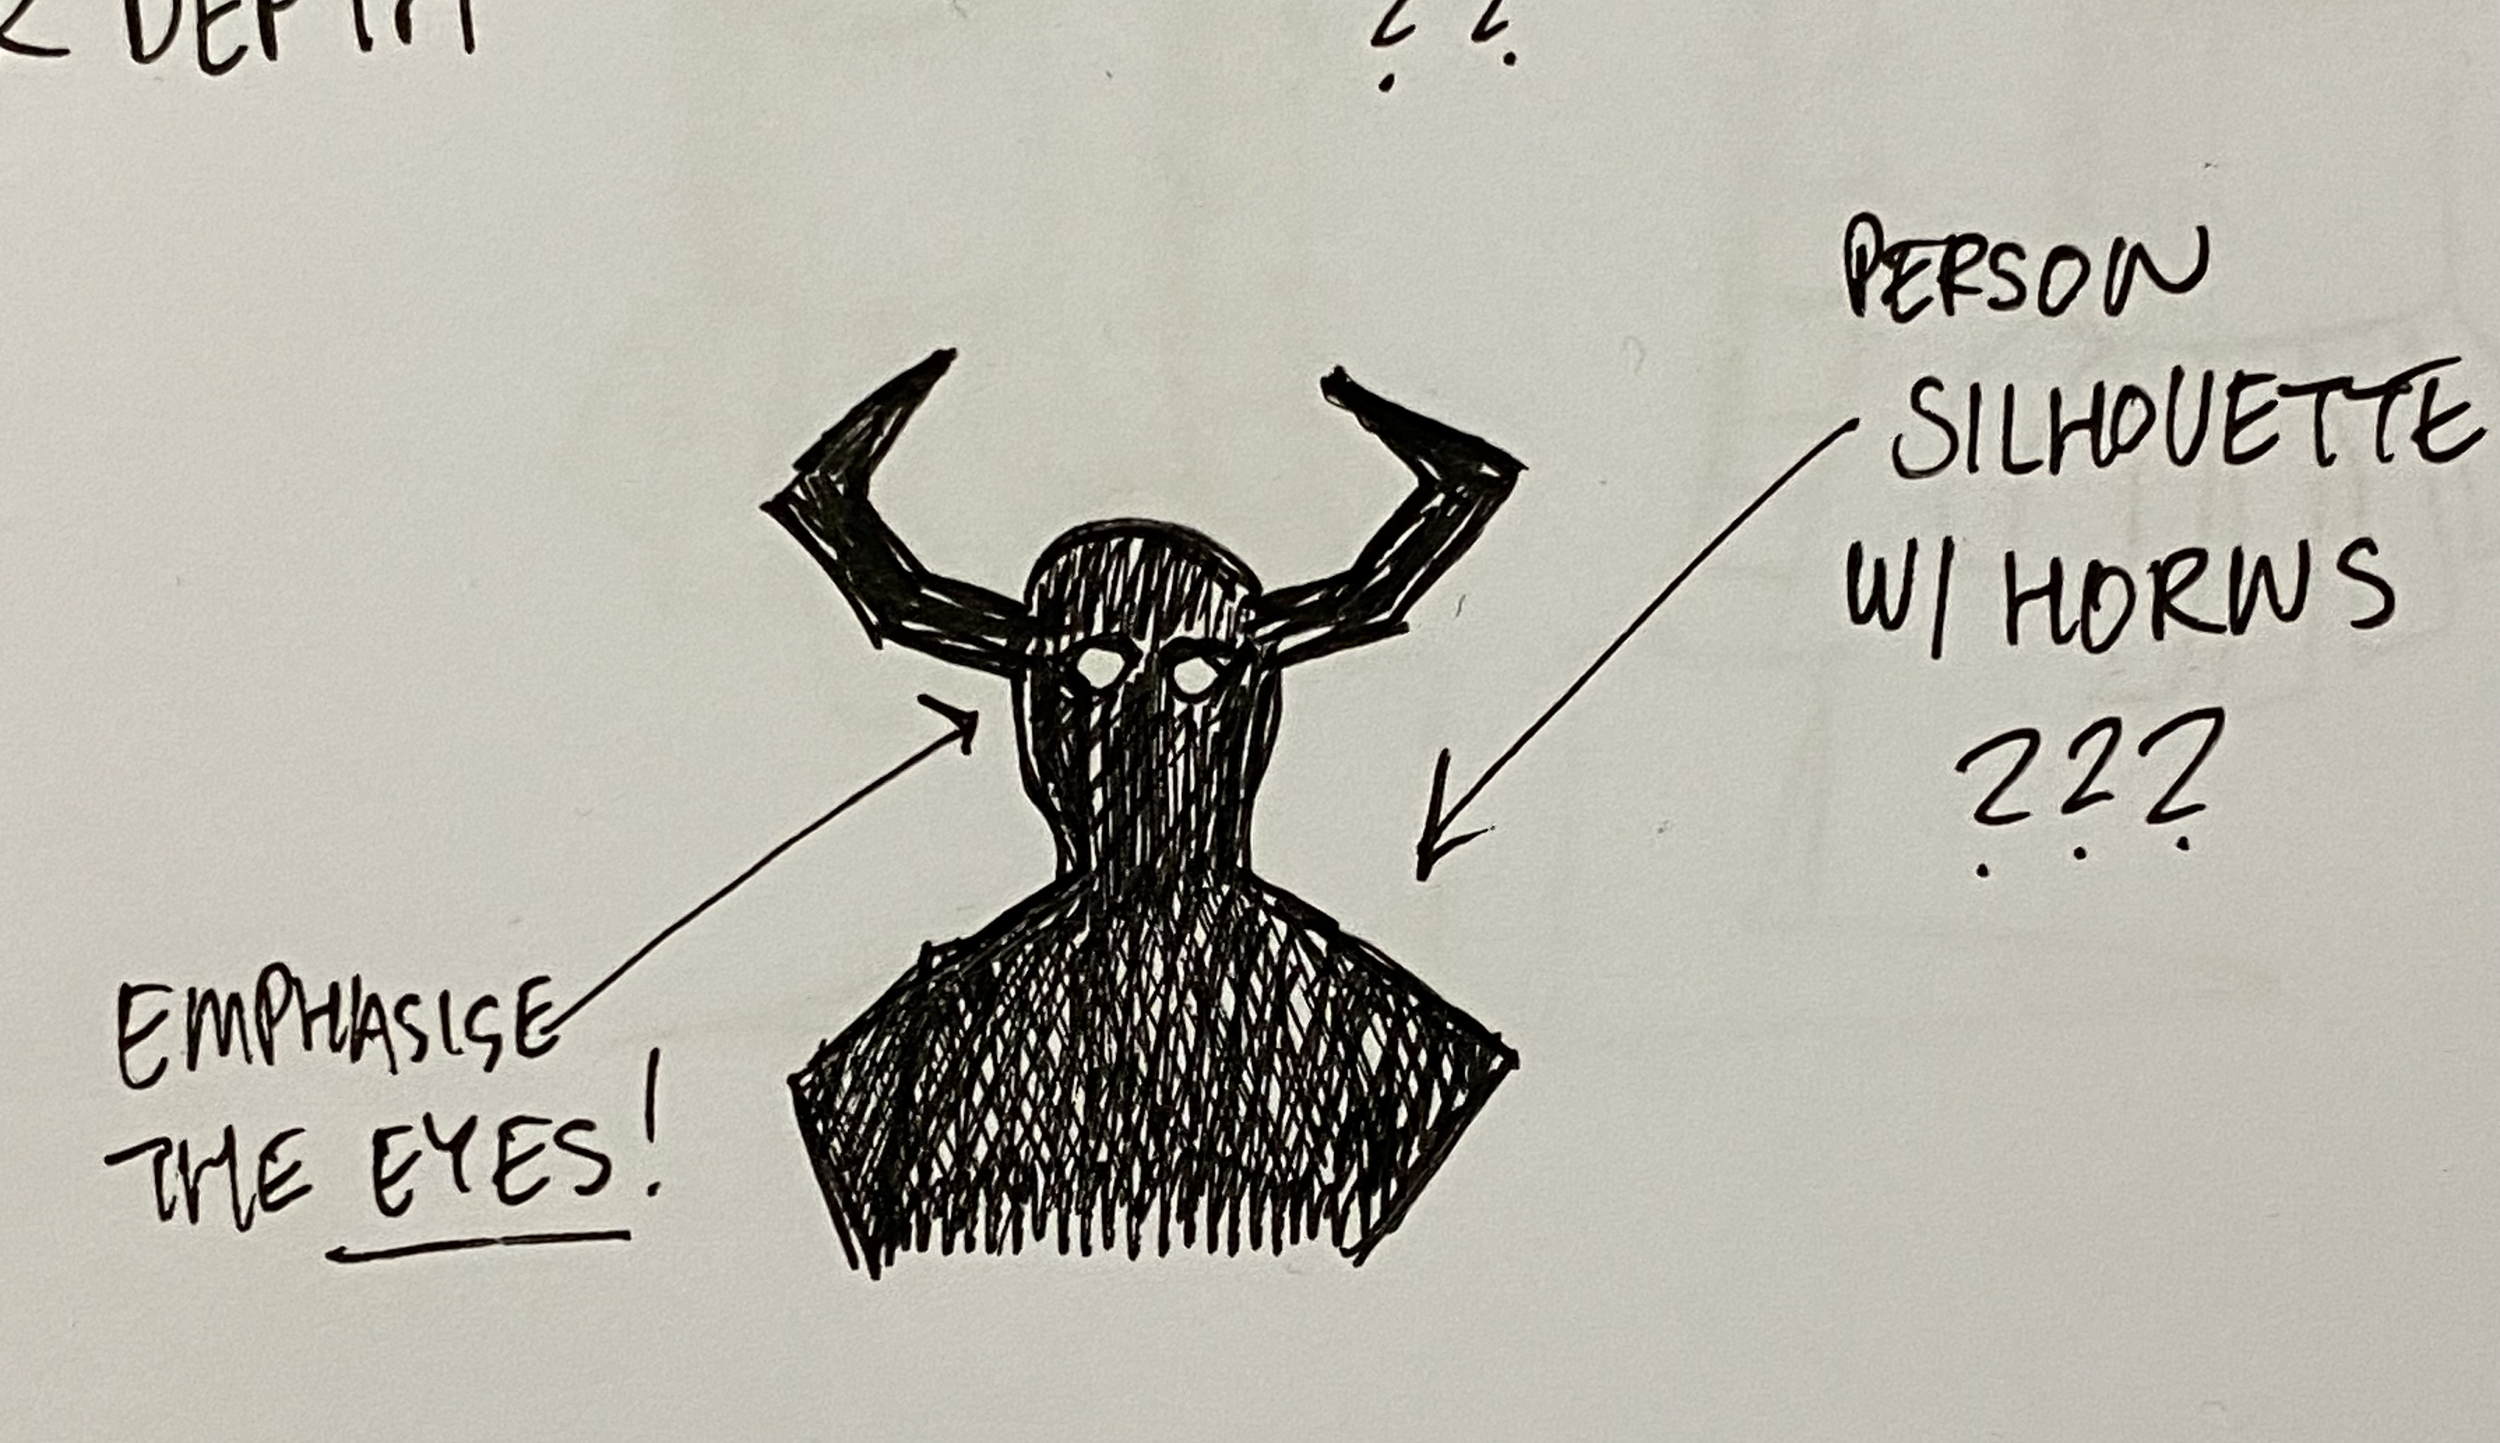 DEPTH
??
PERSON
SILHOUETTE
W/ HORNS
???
EMPHASISE
THE EYES!